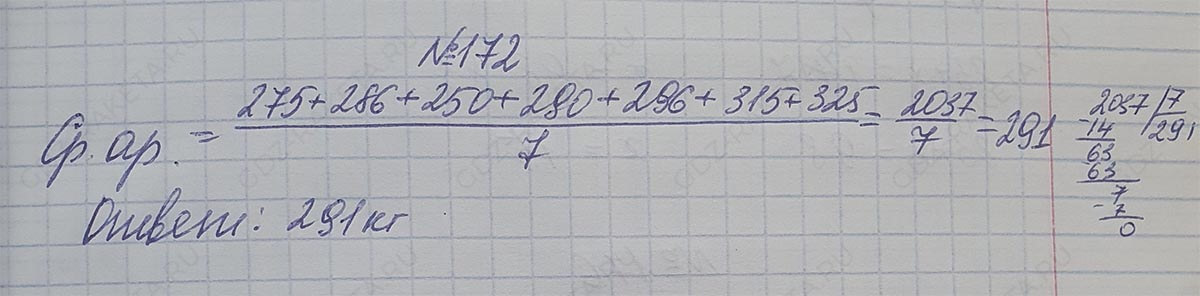 №172
Ср. ар. = 275+286+250+290+296+315+325 / 7 = 2037 / 7 = 291
Ответ: 291 кг
2037 | 7
-14 291
63
63
7
-7
0